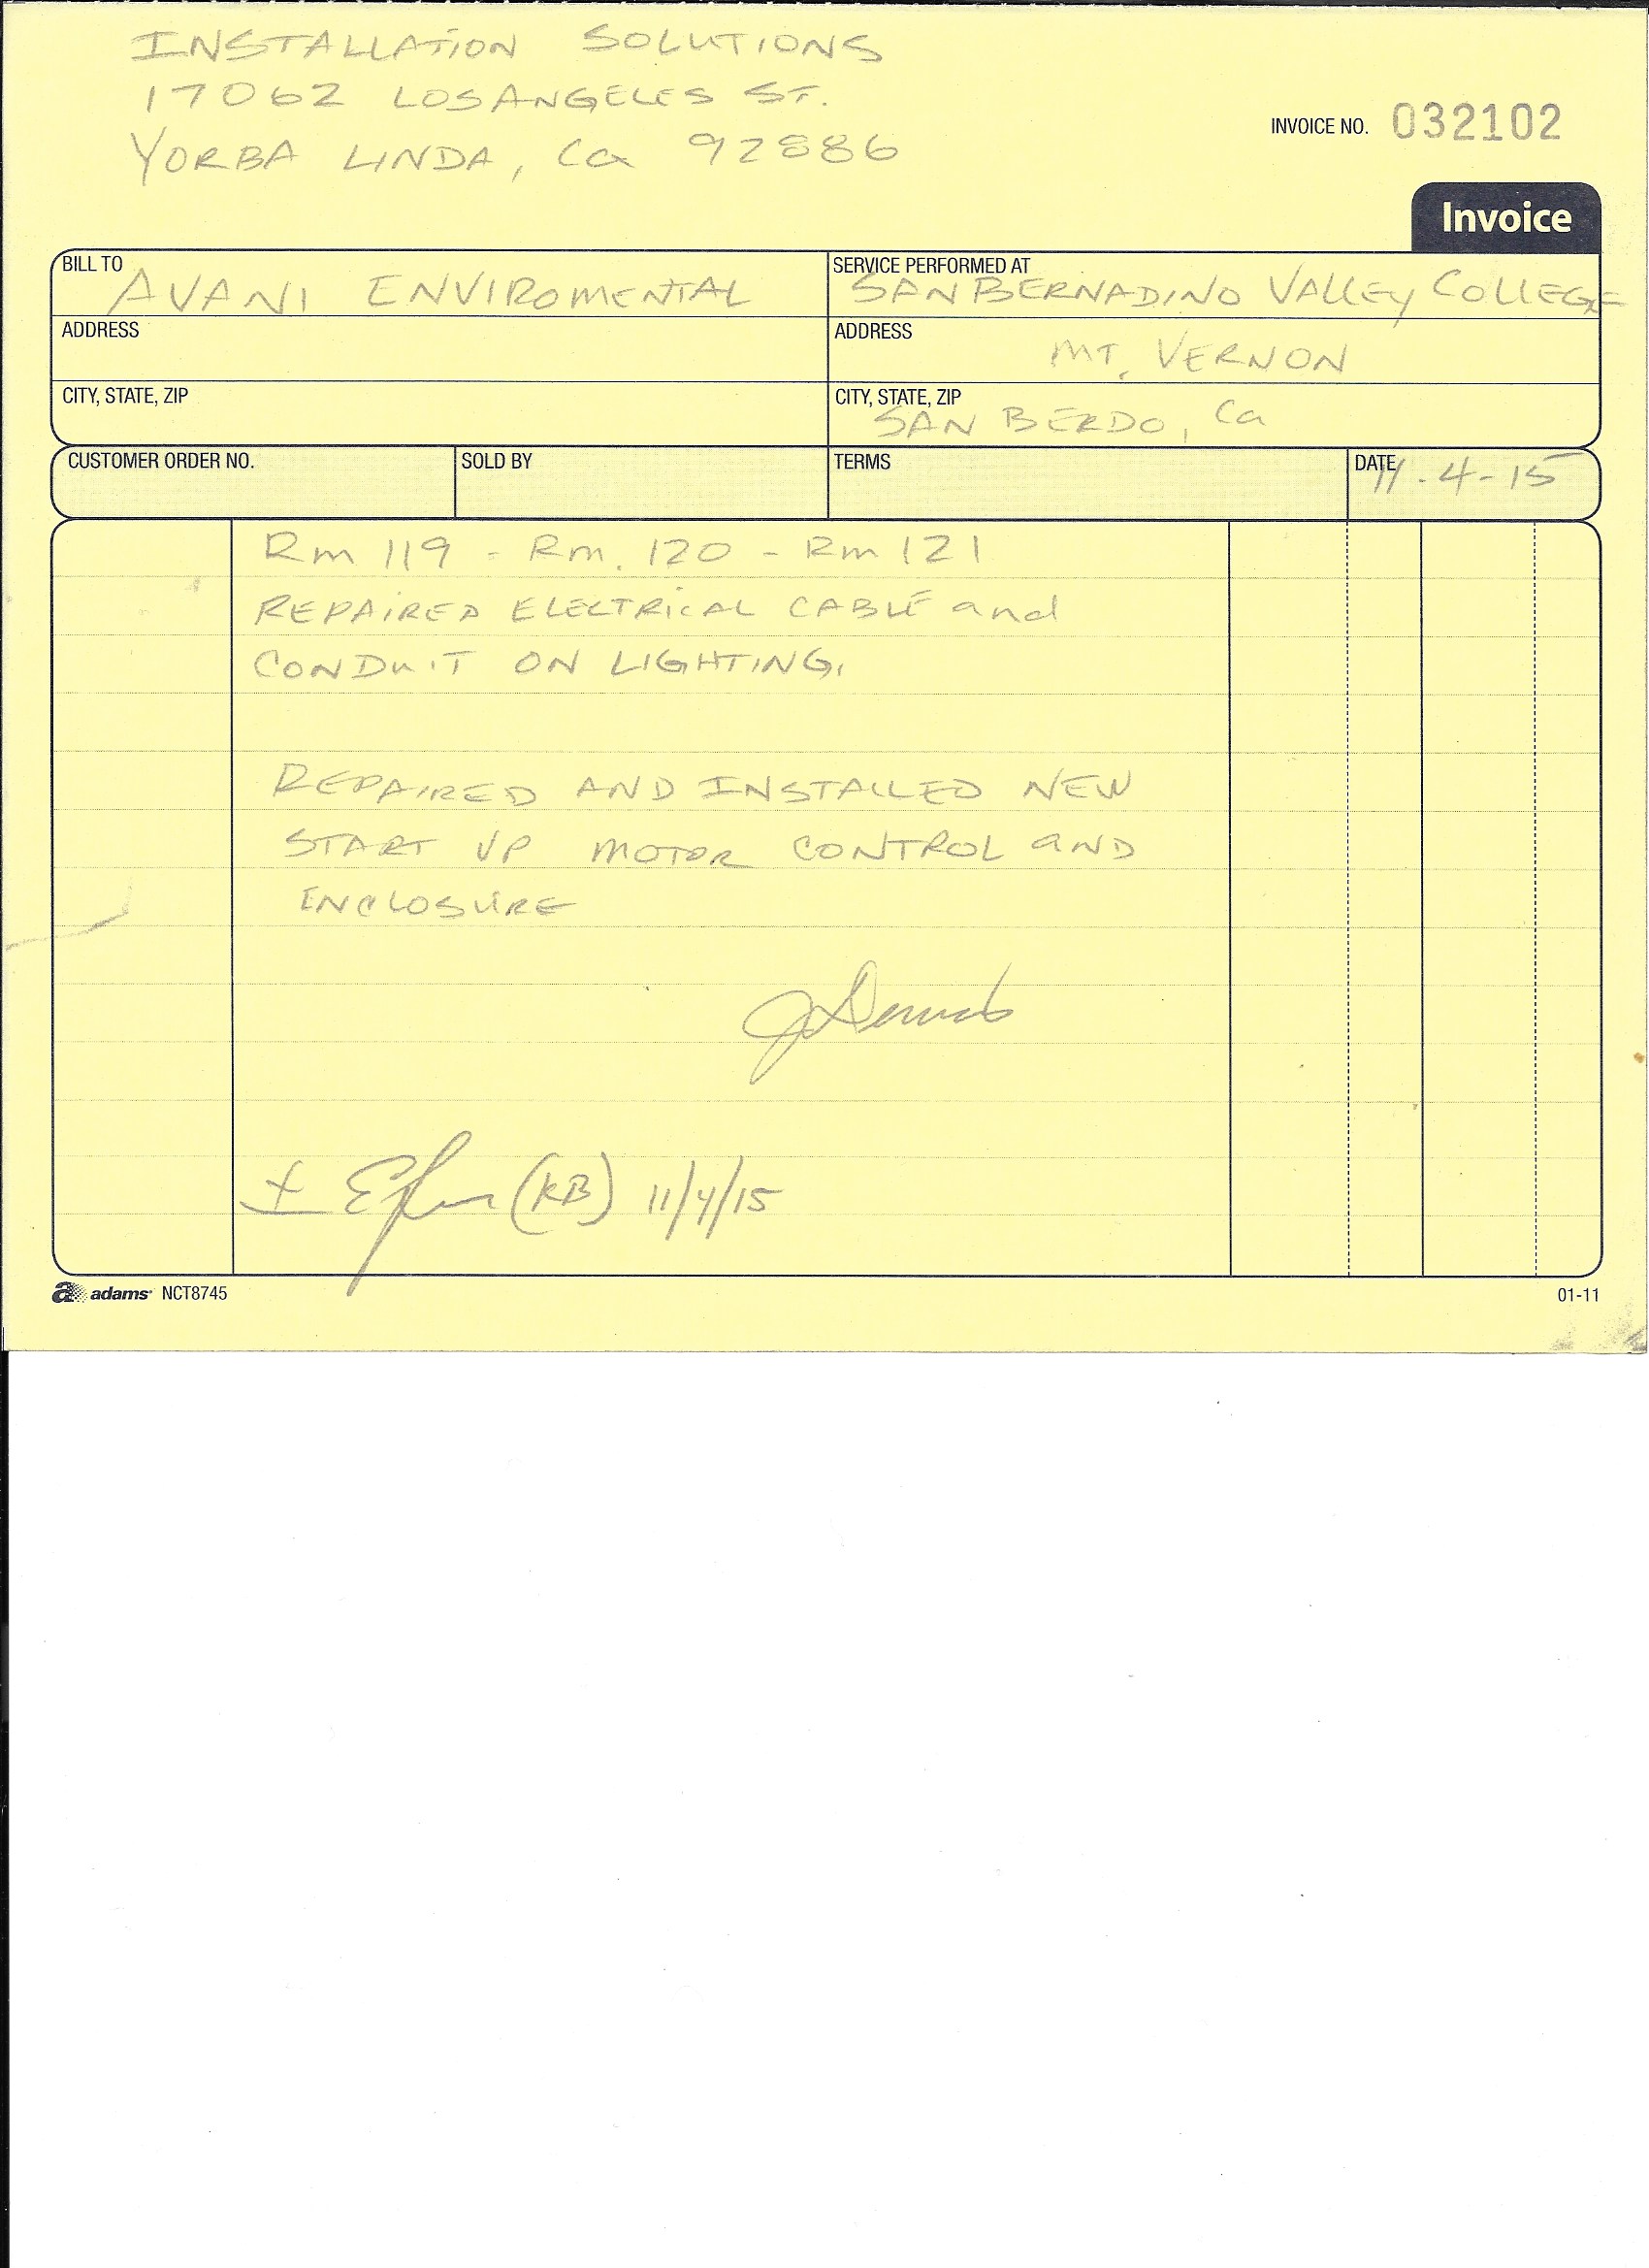 INSTALLATION SOLUTIONS
17062 LOS ANGELES ST.
YORBA LINDA, Ca 92886
INVOICE NO. 032102
Invoice
BILL TO
AVANI ENVIROMENTAL
SERVICE PERFORMED AT
SAN BERNADINO VALLEY COLLEGE
ADDRESS
ADDRESS
MT. VERNON
CITY, STATE, ZIP
CITY, STATE, ZIP
SAN BERDO, Ca
CUSTOMER ORDER NO.
SOLD BY
TERMS
DATE
11-4-15
Rm 119 - Rm. 120 - Rm 121
REPAIRED ELECTRICAL CABLE and
CONDUIT ON LIGHTING.
REPAIRED AND INSTALLED NEW
START UP MOTOR CONTROL AND
ENCLOSURE
(KB) 11/4/15
adams NCT8745
01-11